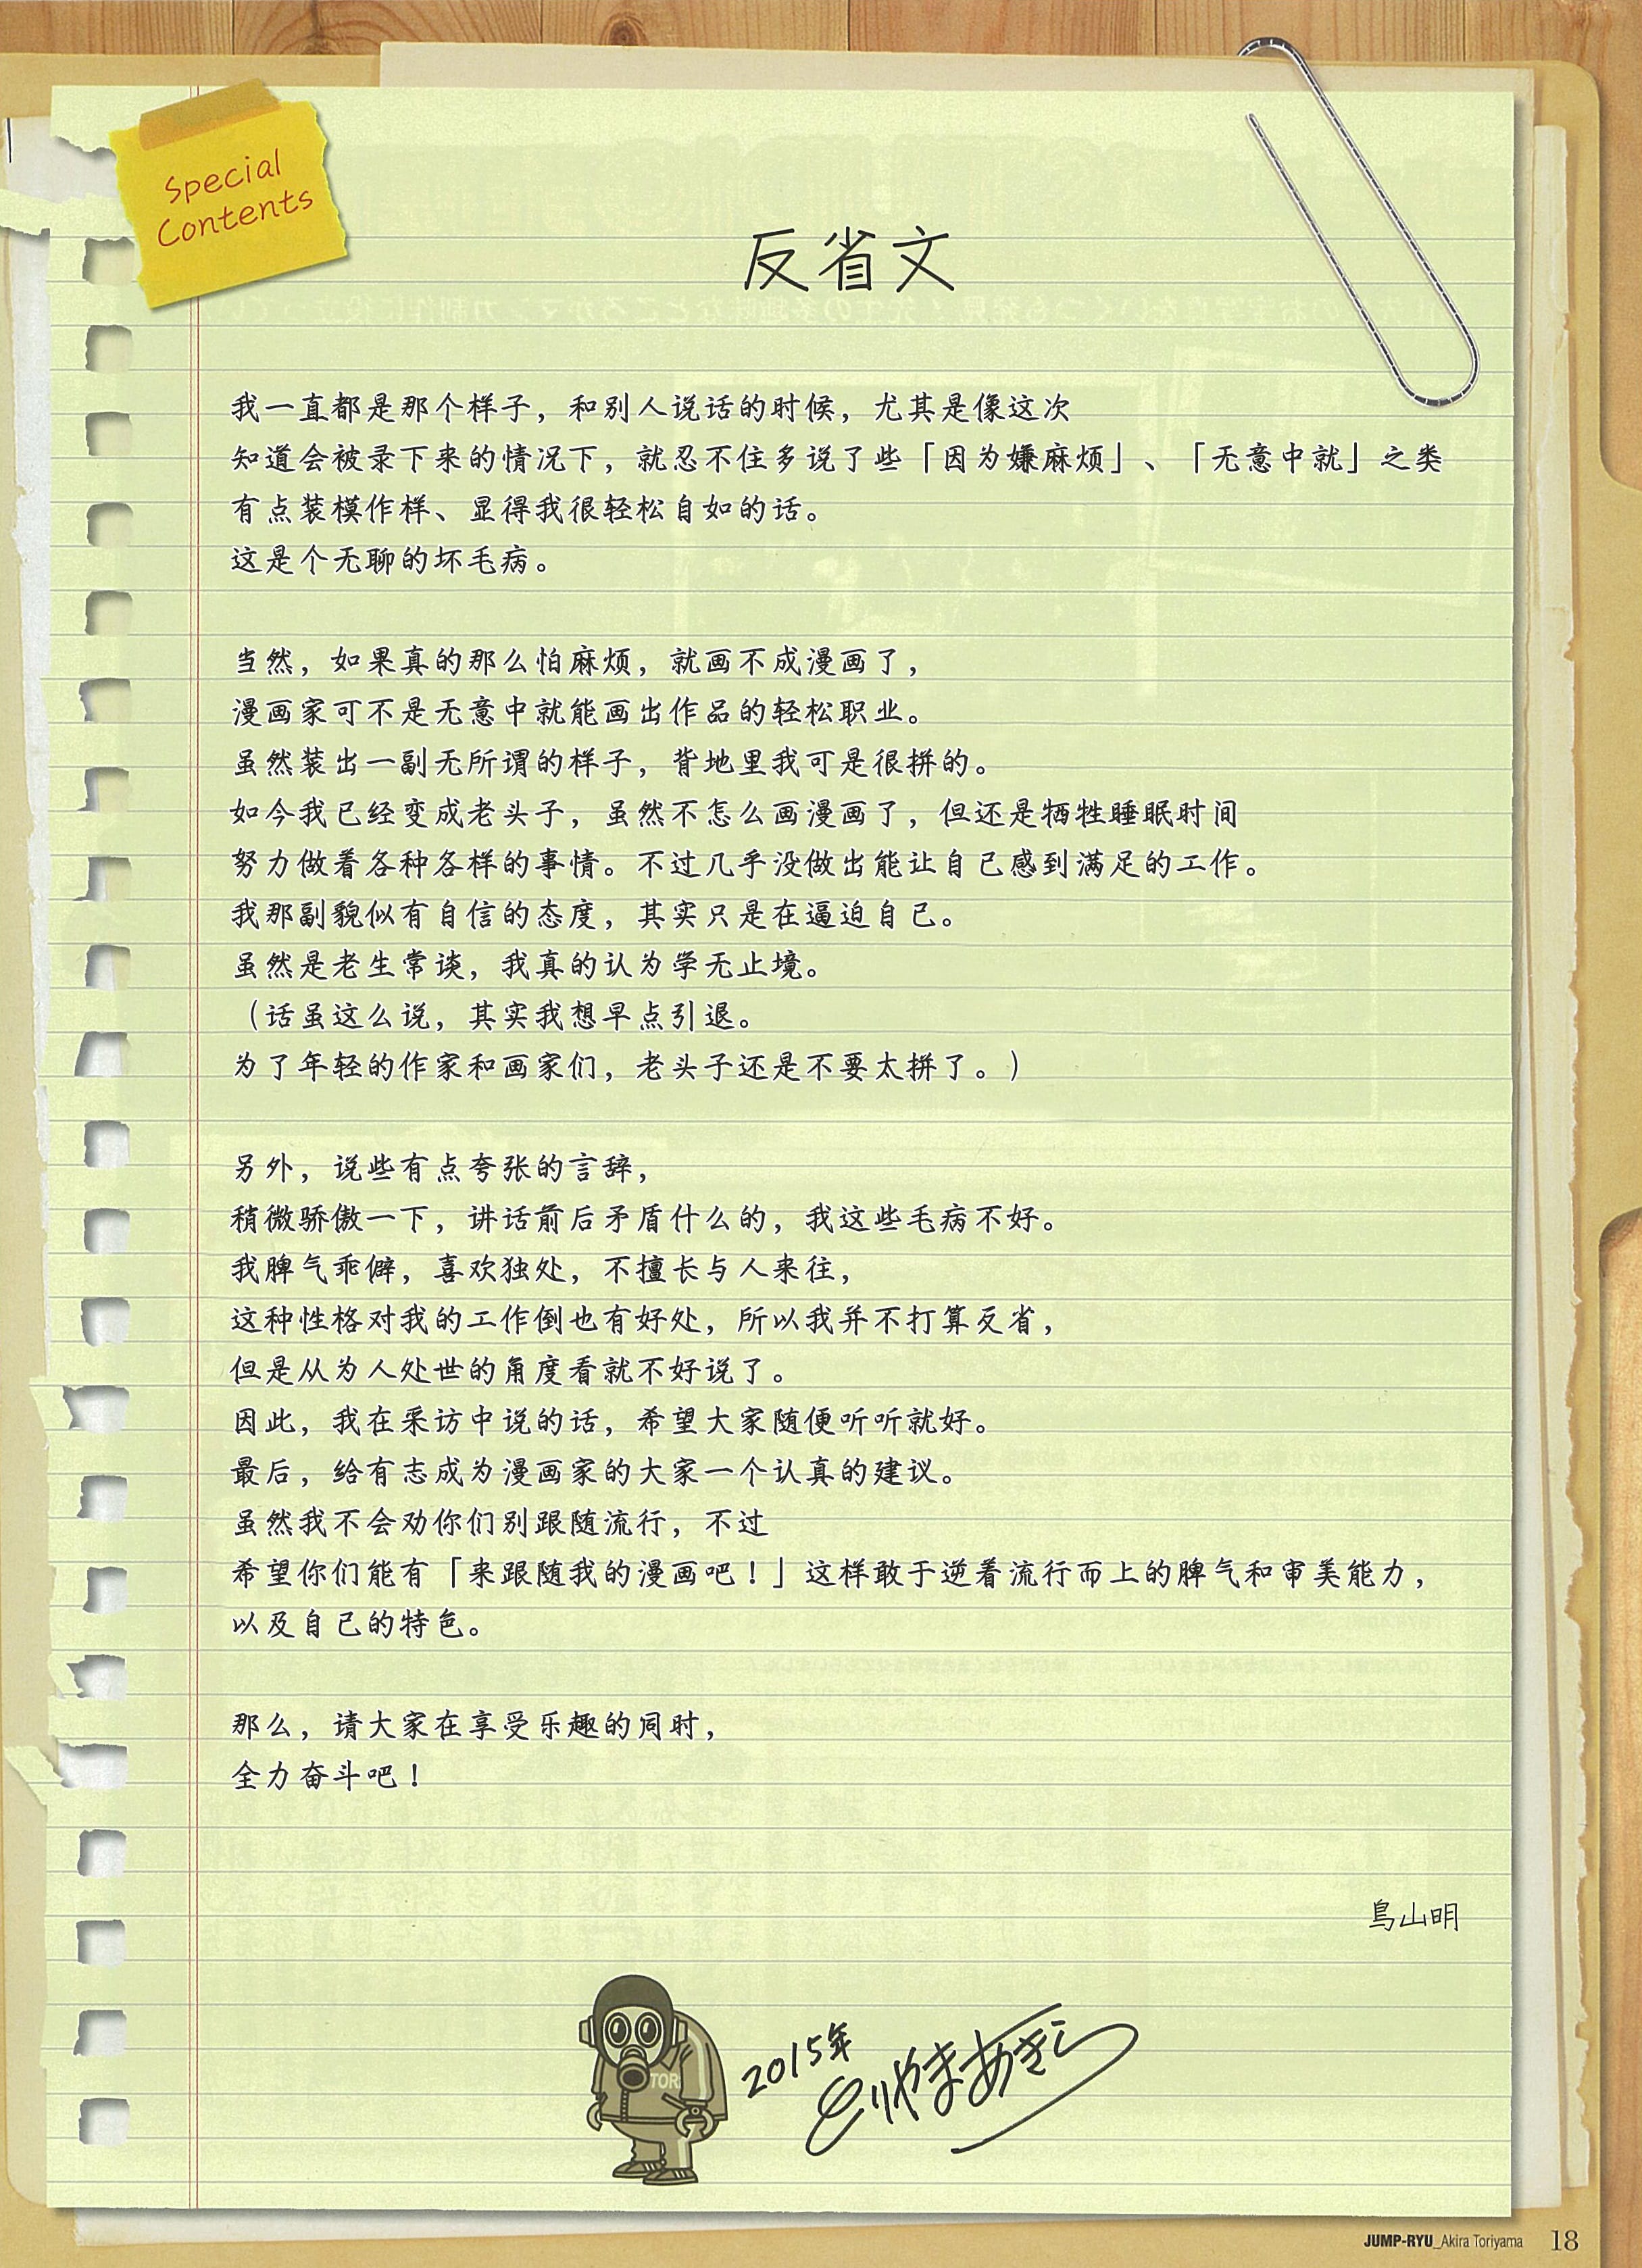 Special
Contents
反省文
我一直都是那个样子，和别人说话的时候，尤其是像这次
知道会被录下来的情况下，就忍不住多说了些「因为嫌麻烦」、「无意中就」之类
有点装模作样、显得我很轻松自如的话。
这是个无聊的坏毛病。
当然，如果真的那么怕麻烦，就画不成漫画了，
漫画家可不是无意中就能画出作品的轻松职业。
虽然装出一副无所谓的样子，背地里我可是很拼的。
如今我已经变成老头子，虽然不怎么画漫画了，但还是牺牲睡眠时间
努力做着各种各样的事情。不过几乎没做出能让自己感到满足的工作。
我那副貌似有自信的态度，其实只是在逼迫自己。
虽然是老生常谈，我真的认为学无止境。
（话虽这么说，其实我想早点引退。
为了年轻的作家和画家们，老头子还是不要太拼了。）
另外，说些有点夸张的言辞，
稍微骄傲一下，讲话前后矛盾什么的，我这些毛病不好。
我脾气乖僻，喜欢独处，不擅长与人来往，
这种性格对我的工作倒也有好处，所以我并不打算反省，
但是从为人处世的角度看就不好说了。
因此，我在采访中说的话，希望大家随便听听就好。
最后，给有志成为漫画家的大家一个认真的建议。
虽然我不会劝你们别跟随流行，不过
希望你们能有「来跟随我的漫画吧！」这样敢于逆着流行而上的脾气和审美能力，
以及自己的特色。
那么，请大家在享受乐趣的同时，
全力奋斗吧！
鸟山明
TORI
2015年
とりやまあきら
JUMP-RYU_Akira Toriyama 18